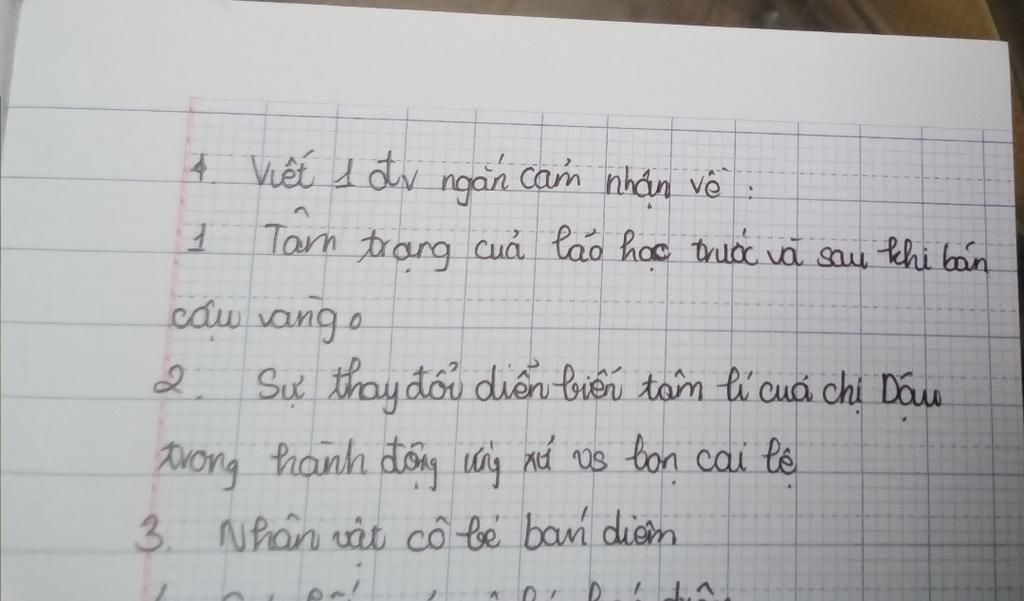 1. Viết 1 đv ngắn cảm nhận về :
1 Tâm trạng của lão hạc trước và sau khi bán
cậu vàng.
2. Sự thay đổi diễn biến tâm lí của chị Dậu
trong hành động ứng xử vs bọn cai lệ
3. Nhân vật cô bé bán diêm